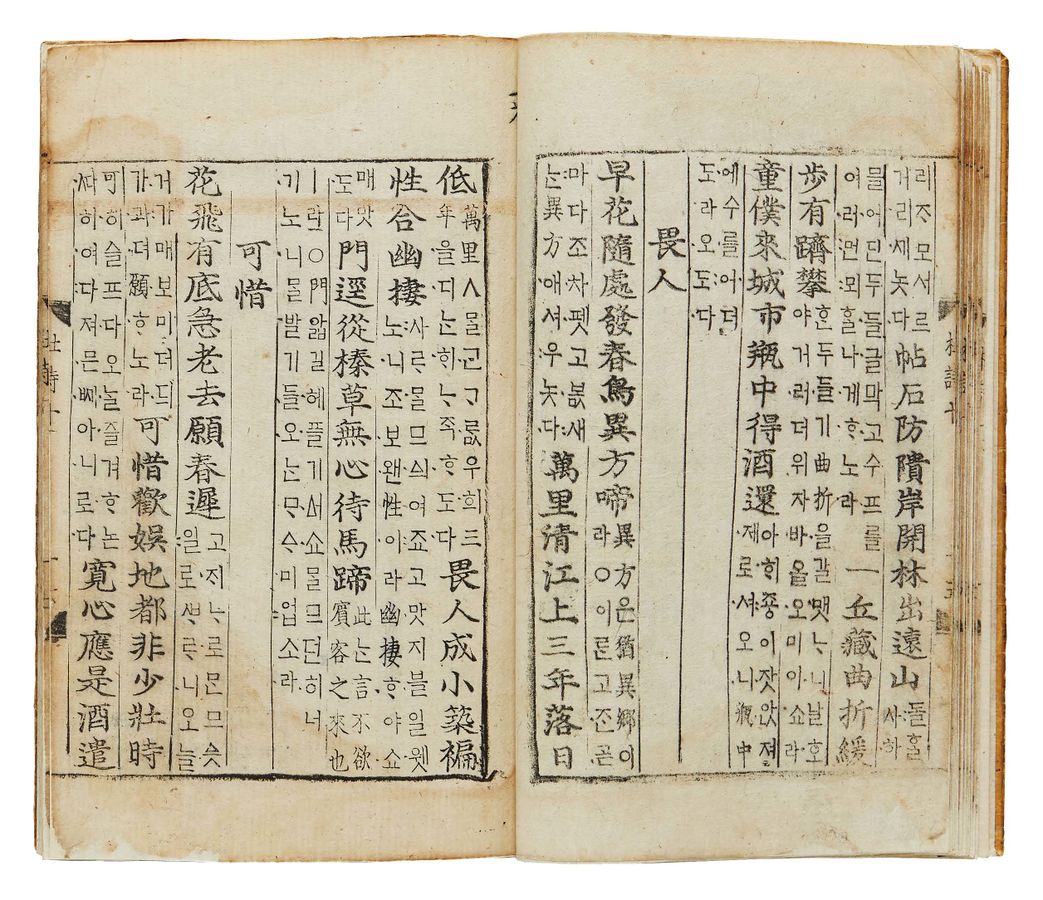 리ᄌᆞ모셔르 거리세놋다 帖石防隤岸開林出遠山 돌흘 사하
믈어딘두들글막고수프를 여러먼뫼흘나게ᄒᆞ노라 一丘藏曲折緩
步有躋攀 ᄒᆞᆫ두들기曲折을갈맷ᄂᆞ니날호 야거러더위자바올오미이쇼라
童僕來城市瓶中得酒還 아ᄒᆡ죵이잣앉져 제로셔오니瓶中
에수를어더 도라오도다
畏人
早花隨處發春鳥異方啼 異方은猶異鄕이 라○이른고ᄌᆞᆫ곧
마다조차펫고봀새 ᄂᆞᆫ異方애셔우놋다 萬里清江上三年落日
低 萬里ㅅᄆᆞᆯᄀᆞᆫᄀᆞᄅᆞᇝ우희三 年을디ᄂᆞᆫᄒᆡᄂᆞᄌᆞᆨᄒᆞ도다 畏人成小築褊
性合幽棲 사ᄅᆞᆷ믈므싀여죠고맛지블일웻 노니조보왠性이라幽棲ᄒᆞ야쇼
매맛 도다 門逕從榛草無心待馬蹄 此ᄂᆞᆫ言不欲 賓客之來也
ㅣ라○門앏길헤플기ᅀᅥ쇼ᄆᆞᆯ므던히너 기노니ᄆᆞᆯ발기들오ᄂᆞᆫᄆᆞᅀᆞ미업소라
可惜
花飛有底急老去願春遲 고지ᄂᆞ로ᄆᆞᆫ므슷 일로ᄲᆞᄅᆞ니오ᄂᆞᆯ
거가매보미더듸 가과뎌願ᄒᆞ노라 可惜歡娛地都非少壯時
可히슬프다오ᄂᆞᆯ즐겨ᄒᆞ논 ᄯᅡ히여다져믄ᄢᅴ아니로다 寬心應是酒遣